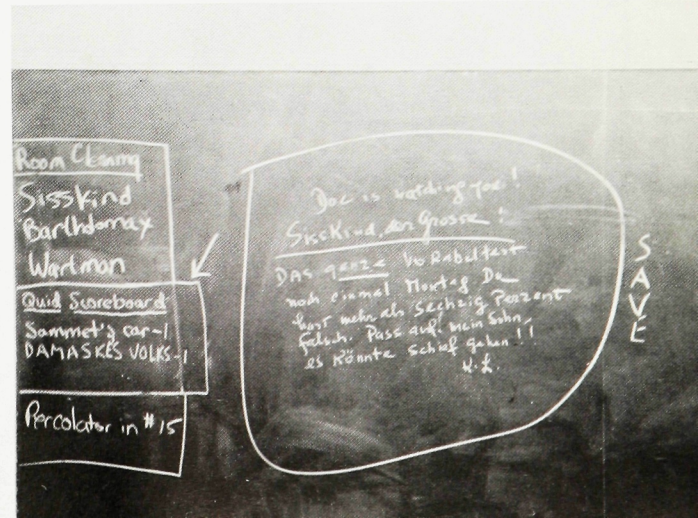 Room Cleaning
Sisskind
Bartholomay
Wartman
Quid Scoreboard
Sammet's car-1
DAMASKES VOLKS-1
Percolator in #15
Doc is watching you!
SissKind der Grosse!
DAS ganze Vokabeltest
noch einmal Montag Du
hast mehr als Sechzig Perzent
falsch. Pass auf mein Sohn,
es könnte schief gehen!!
K.L.
SAVE